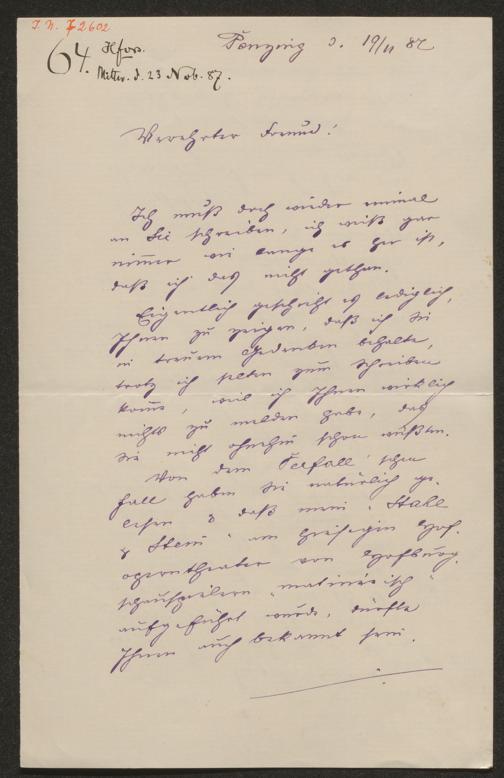 I. N. 72602
64. Hfor.
Mittw. d. 23 Nob. 87.
Penzing d. 19/11 87
Verehrter Freund!
Ich muß doch wieder einmal
an Sie schreiben, ich weiß gar
nimmer wie lange es her ist,
daß ich das nicht gethan.
Eigentlich geschieht es lediglich,
Ihnen zu zeigen, daß ich Sie
in treuem Gedenken behalte,
trotz ich selten zum Schreiben
kome, weil ich Ihnen wirklich
nichts zu melden habe, das
Sie nicht ohnehin schon wüßten.
Von dem schen
fall haben Sie natürlich ge-
lesen & daß mein "Stahl
& Stein" am hiesigen Hof-
operntheater von Hofburg-
schauspielern "matinéeisch"
aufgeführt wurde, dürfte
Ihnen auch bekannt sein.